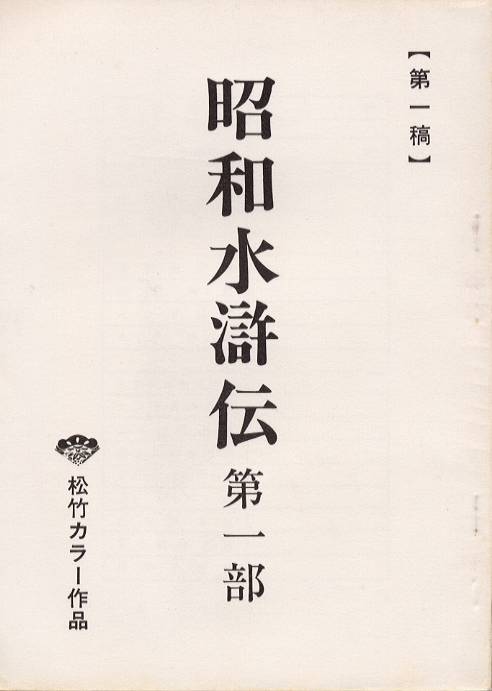 【第一稿】
昭和水滸伝 第一部
松竹カラー作品